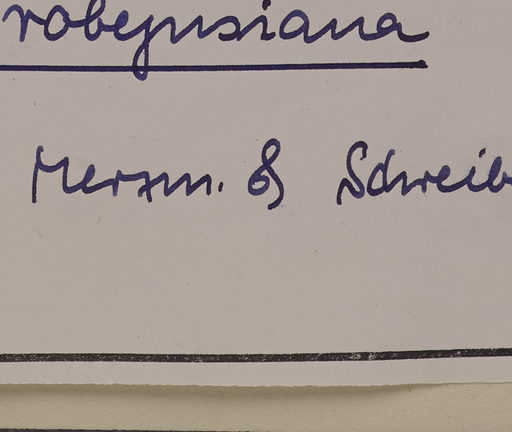 robeynsiana
Merxm. & Schreib